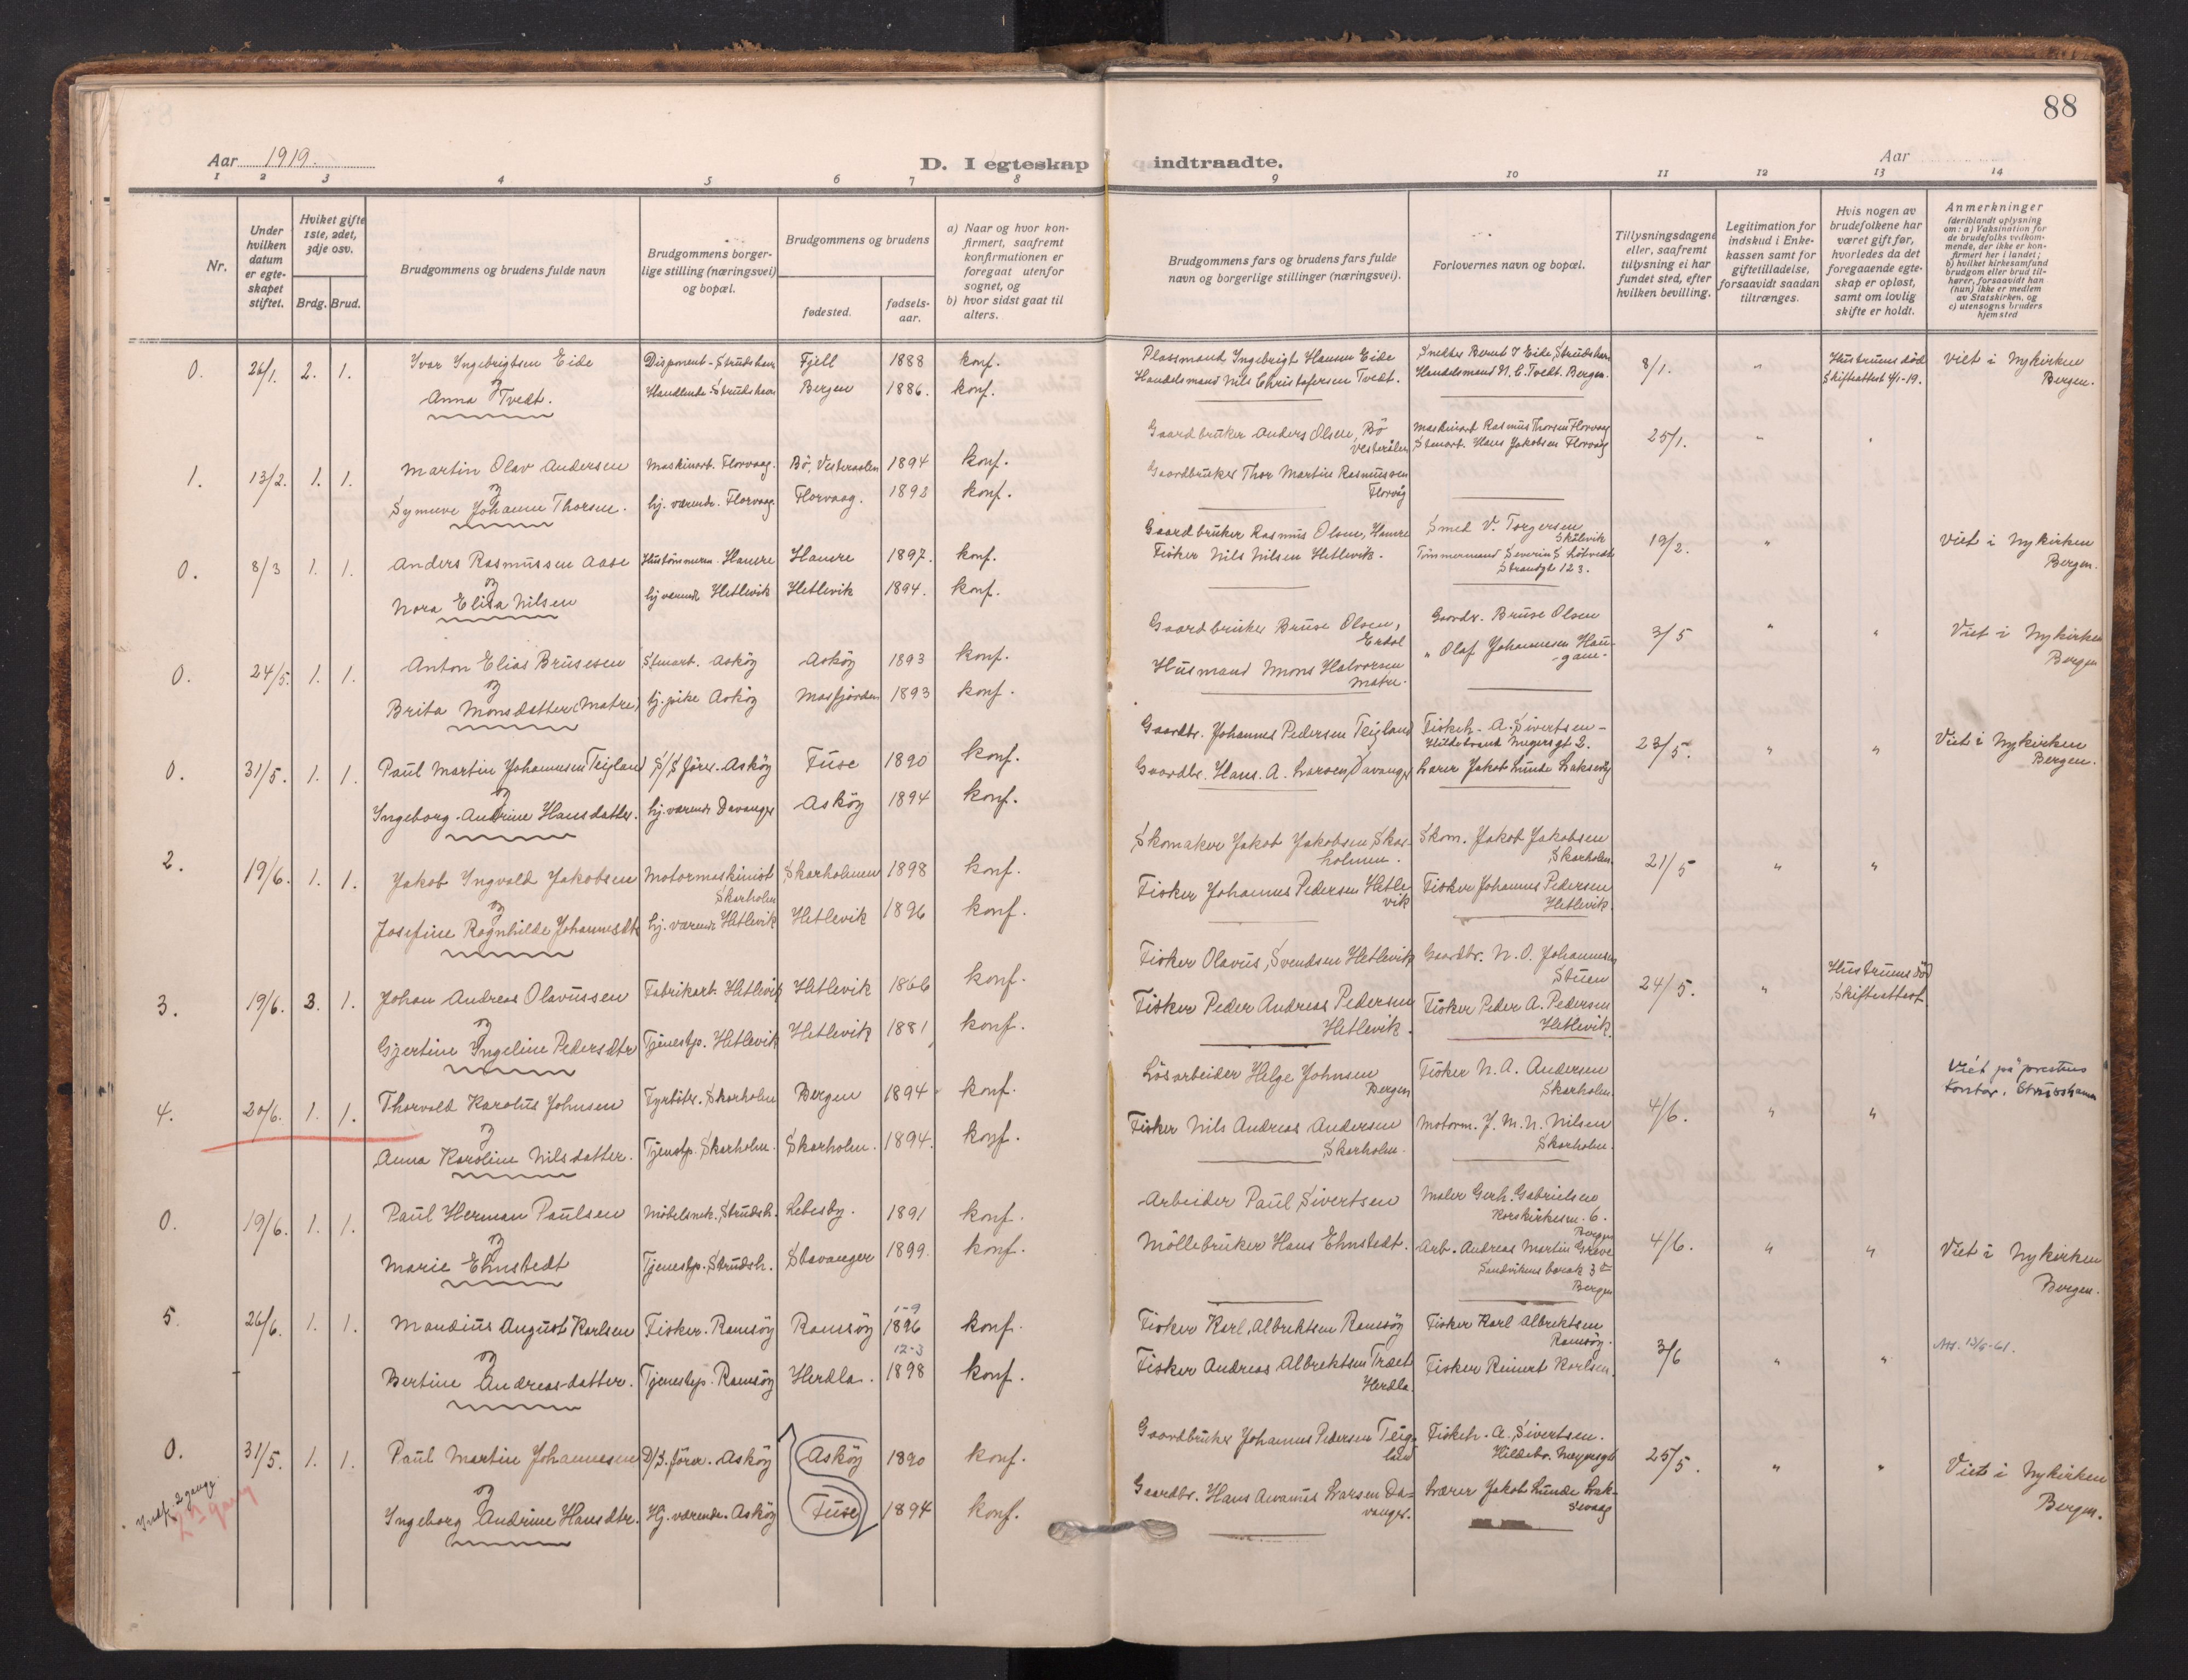 88
Aar 1919.
D. I egteskap indtraadte.
Aar
1 2 3 4 5 6 7 8 9 10 11 12 13 14
Nr.
Under hvilken datum er egteskapet stiftet.
Hviket gifte 1ste, 2det, 3dje osv.
Brdg. Brud.
Brudgommens og brudens fulde navn
Brudgommens borgerlige stilling (næringsvei) og bopæl.
Brudgommens og brudens
fødested.
fødselsaar.
a) Naar og hvor konfirmert, saafremt konfirmationen er foregaat utenfor sognet, og
b) hvor sidst gaat til alters.
Brudgommens fars og brudens fars fulde navn og borgerlige stillinger (næringsvei).
Forlovernes navn og bopæl.
Tillysningsdagene eller, saafremt tillysning ei har fundet sted, efter hvilken bevilling.
Legitimation for indskud i Enkekassen samt for giftetilladelse, forsaavidt saadan tiltrænges.
Hvis nogen av brudefolkene har været gift før, hvorledes da det foregaaende egteskap er opløst, samt om lovlig skifte er holdt.
Anmerkninger
(deriblandt oplysning om: a) Vaksination for de brudefolks vedkommende, der ikke er konfirmert her i landet; b) hvilket kirkesamfund brudgom eller brud tilhører, forsaavidt han (hun) ikke er medlem av Statskirken, og c) utensogns bruders hjemsted
0. 26/1. 2. 1. Ivar Ingebrigtsen Eide Disponent - Strudshavn Fjell 1888 konf. Plassmand Ingebrigt Hansen Eide Snedker Bernt I Eide, Strudshavn 8/1. " Hustruens död Viet i Nykirken
og
Anna Tvedt. Handlende Strudshavn Bergen 1886. konf. Handelsmand Nils Christofersen Tvedt. Handelsmand N. C. Tvedt. Bergen. Skifteattest 4/1-19. Bergen.
1. 13/2. 1. 1. Martin Olav Andersen Maskinarb. Florvaag. Bö, Vesteraalen 1894 konf. Gaardbruker Anders Olsen, Bö Vesterålen Maskinarb Rasmus Thorsen Florvaag 25/1. "
og
Synneve Johanne Thorsen. hj. værende. Florvaag Florvaag. 1893 konf. Gaardbruker Thor Martin Rasmussen Florvåg Stuart. Hans Jakobsen Florvaag
0. 8/3 1. 1. Anders Rasmussen Aase Hustömmerm. Hanvre Hanvre 1897. konf. Gaardbruker Rasmus Olsen, Hanvre Smed V. Torgersen Skålvik 19/2. " Viet i Nykirken
og
Nora Elisa Nilsen hj værende Hetlevik Hetlevik 1894. konf. Fisker Nils Nilsen Hetlevik. Tömmermand Severin S Lötvedt Strandgt 123. Bergen.
0. 24/5. 1. 1. Anton Elias Brusesen Stuart. Asköy Asköy 1893 konf. Gaardbruker Bruse Olsen, Erdal Gaardbr. Bruse Olsen 3/5 " " Viet i Nykirken
og
Brita Monsdatter (Matre) hj. pike Asköy Masfjorden 1893 konf. Husmand Mons Halvorsen Matre. " Olaf Johannesen Haugane. Bergen
0. 31/5. 1. 1. Paul Martin Johannesen Teigland S/S förer. Asköy Fuse 1890 konf. Gaardbr. Johannes Pedersen Teigland Fiskeh. A. Sivertsen - Hildebrand Meyersgt 2. 23/5. " " Viet i Nykirken
og
Ingeborg Andrine Hansdatter. hj. værende Davanger Asköy 1894 konf. Gaardbr. Hans. A. Larsen, Davanger Lærer Jakob Lunde Laksevåg Bergen.
2. 19/6. 1. 1. Jakob Ingvald Jakobsen Motormaskinist Skarholm Skarholmen 1898 konf. Skomaker Jakob Jakobsen, Skarholmen. Skom. Jakob Jakobsen Skarholm. 21/5 " "
og
Josefine Ragnhilde Johannesdtr hj. værende Hetlevik Hetlevik 1896 konf. Fisker Johannes Pedersen Hetlevik Fisker Johannes Pedersen Hetlevik.
3. 19/6. 3. 1. Johan Andreas Olavussen Fabrikarb. Hetlevik Hetlevik 1866 konf. Fisker Olavus, Svendsen Hetlevik Gaardbr. N. O. Johannesen Stuen 24/5. " Hustruens död
og
Gjertine Ingeline Pedersdtr Tjenestep. Hetlevik Hetlevik 1881 konf. Fisker Peder Andreas Pedersen Hetlevik. Fisker Peder A. Pedersen Hetlevik. Skifteattest
4. 20/6. 1. 1. Thorvald Karolus Johnsen Fyrböter. Skarholm Bergen 1894 konf. Lösarbeider Helge Johnsen Bergen Fisker N. A. Andersen Skarholm. 4/6. " " Viet på prestens
og
Anna Karoline Nilsdatter. Tjenestep. Skarholm. Skarholm. 1894. konf. Fisker Nils Andreas Andersen Skarholm. Motorm. J. M. N. Nilsen Skarholm. kontor, Strusshamn
0. 19/6. 1. 1. Paul Herman Paulsen Möbelsnek. Strudsh. Lebesby. 1891 konf. Arbeider Paul Sivertsen Maler Gerh. Gabrielsen Korskirkesm. 6. Bergen 4/6. " " Viet i Nykirken
og
Marie Ehnstedt Tjenestep. Strudsh. Stavanger 1899. konf. Möllebruker Hans Ehnstedt. Arb. Andreas Martin Grave Sandvikens barak 3 Bergen Bergen.
5. 26/6. 1. 1. Mandius August Karlsen Fisker. Ramsöy Ramsöy 1-9 1896 konf. Fisker Karl Albrektsen Ramsöy Fisker Karl Albrektsen Ramsöy. 3/6 " " Att. 13/6-61.
og
Bertine Andreasdatter. Tjenestep. Ramsöy Herdla. 12-3 1898 konf. Fisker Andreas Albrektsen Træet Herdla. Fisker Reinert Karlsen.
0. 31/5. 1. 1. Paul Martin Johannesen D/S. förer. Asköy Asköy 1890 konf. Gaardbruker Johannes Pedersen Teigland Fiskeh. A. Sivertsen. Hildebr. Meyersgt 25/5. " " Viet i Nykirken
og
Indf. 2 gange 2 gang Ingeborg Andrine Hansdtr. Hj. værende. Asköy Fuse 1894 konf. Gaardbr. Hans Larsen Davanger. Lærer Jakob Lunde Laksevaag Bergen.